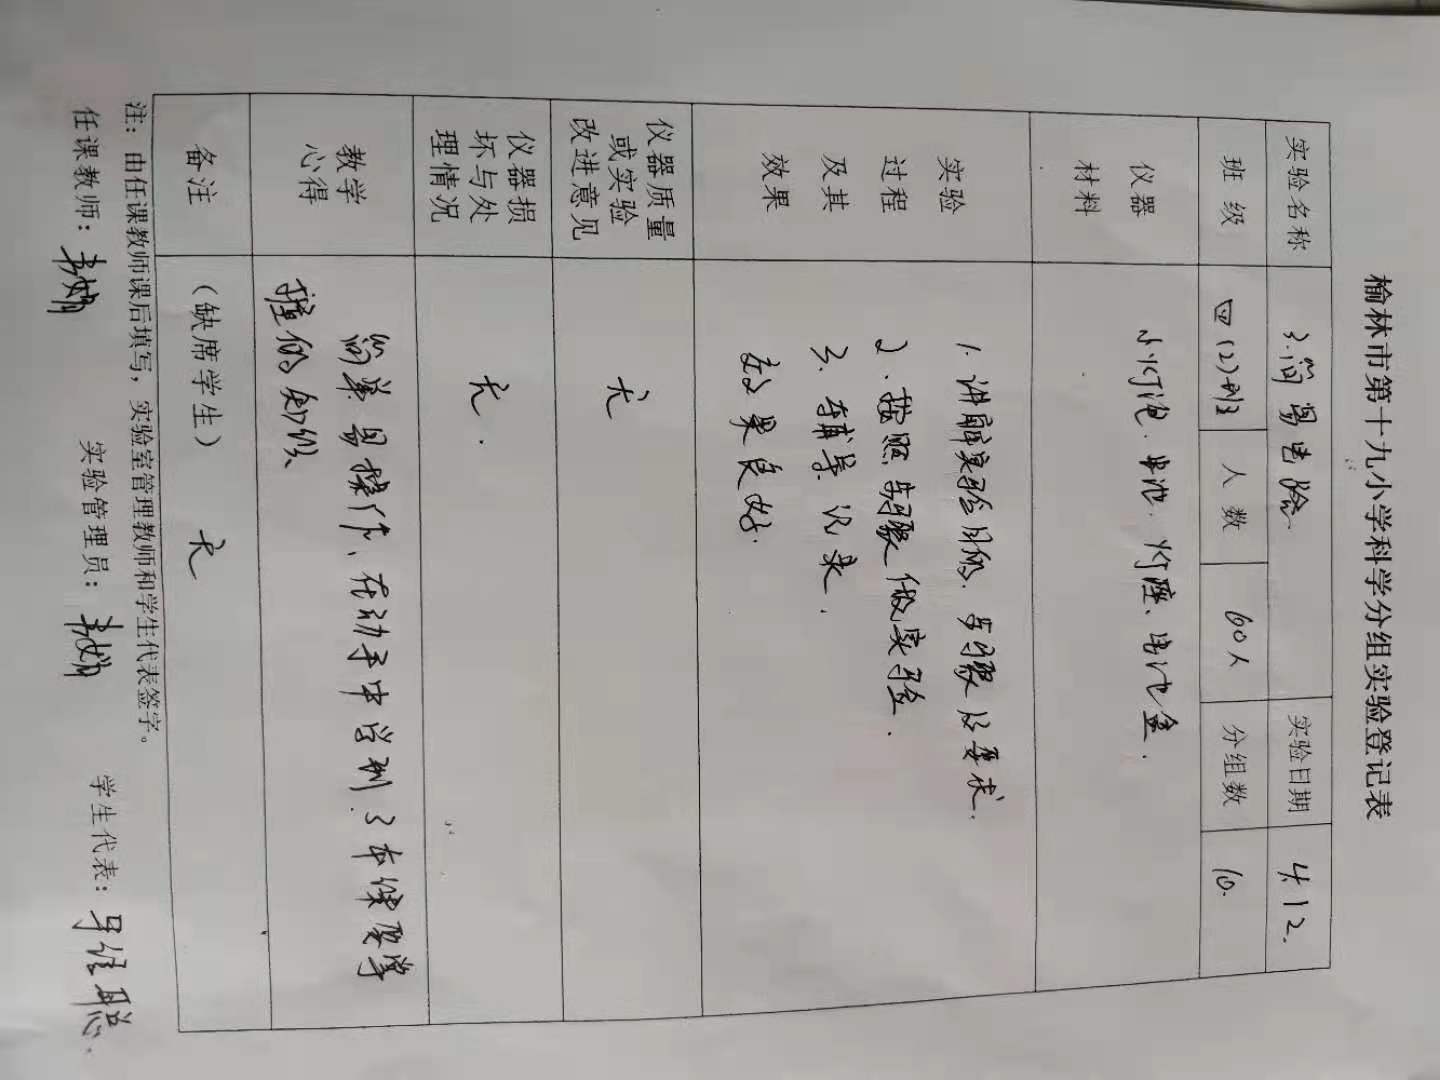 榆林市第十九小学科学分组实验登记表
实验名称 3.简易电 实验日期 4.12.
班级 四(2)班 人数 60人 分组数 10.
仪器
材料
小灯泡. 电池. 灯座、电池盒.
实验
过程
及其
效果
1. 讲解实验目的、步骤及要求.
2. 按照步骤做实验.
3. 辅导记录.
效果良好.
仪器质量
或实验
改进意见
无
仪器损
坏与处
理情况
无.
教学
心得
简单易操作、在动手中学到了本课要掌
握的知识
备注
(缺席学生) 无
注：由任课教师课后填写，实验室管理教师和学生代表签字。
任课教师： 实验管理员： 学生代表： 聪.